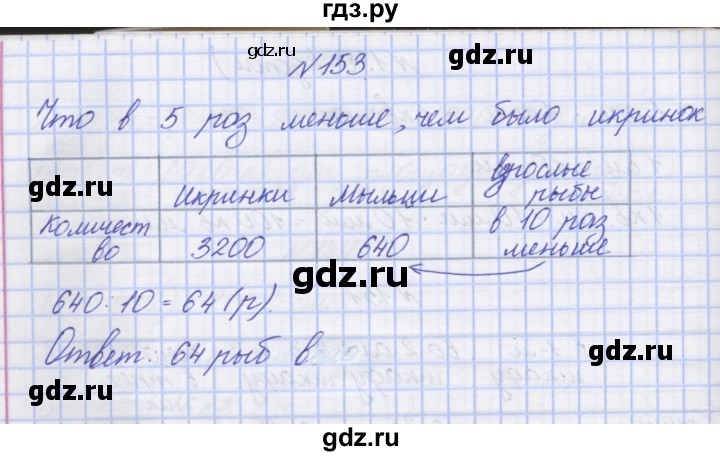 гдз.ру
gdz.ru
№153
gdz.ru
Что в 5 раз меньше, чем было икринок
gdz.ru
Икринки мыльци взрослые рыбы
Количество 3200 640 в 10 раз меньше
gdz.ru
gdz.ru
640:10=64(р).
gdz.ru
Ответ: 64 рыб
gdz.ru
gdz.ru
gdz.ru